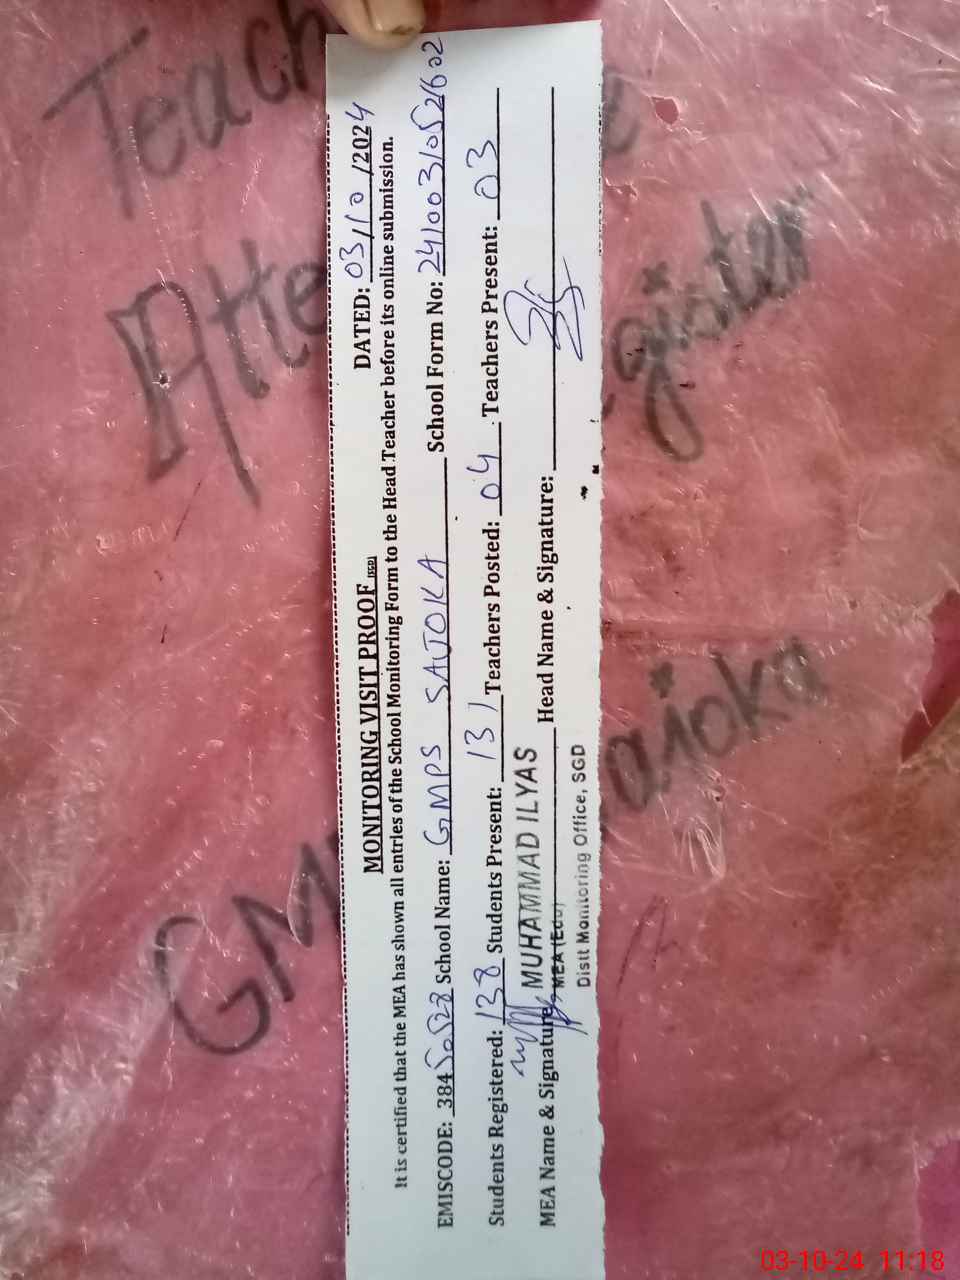 MONITORING VISIT PROOF (SGD)
DATED: 03/10/2024
It is certified that the MEA has shown all entries of the School Monitoring Form to the Head Teacher before its online submission.
EMISCODE: 38450528 School Name: GMPS SAJOKA School Form No: 24100310521602
Students Registered: 138 Students Present: 131 Teachers Posted: 04 Teachers Present: 03
MEA Name & Signature MUHAMMAD ILYAS Head Name & Signature:
MEA (Edu)
Distt Monitoring Office, SGD
Teach
Atte gister
GM
03-10-24 11:18